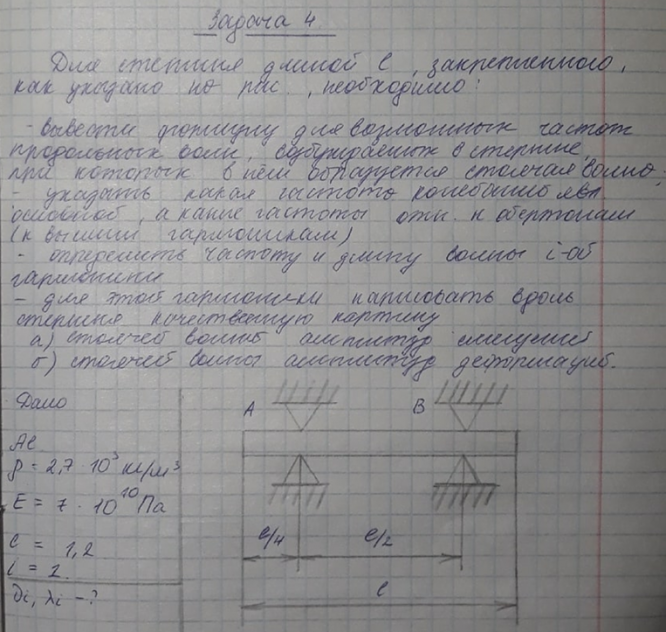 Задача 4
Для стержня длиной l, закрепленного,
как указано на рис., необходимо:
- вывести формулу для возможных частот
продольных волн, возбуждаемых в стержне,
при которых в нём образуется стоячая волна;
- указать какая частота колебаний явл
основной, а какие частоты отн. к обертонам
(к высшим гармоникам)
- определить частоту и длину волны i-ой
гармоники
- для этой гармоники нарисовать вдоль
стержня качественную картину
а) стоячей волны амплитуд смещений
б) стоячей волны амплитуд деформаций.
Дано
A B
Al
ρ = 2,7 10³ кг/м³
E = 7 · 10¹⁰ Па
l = 1,2
i = 2
νi, λi - ?
l/4 l/2
l